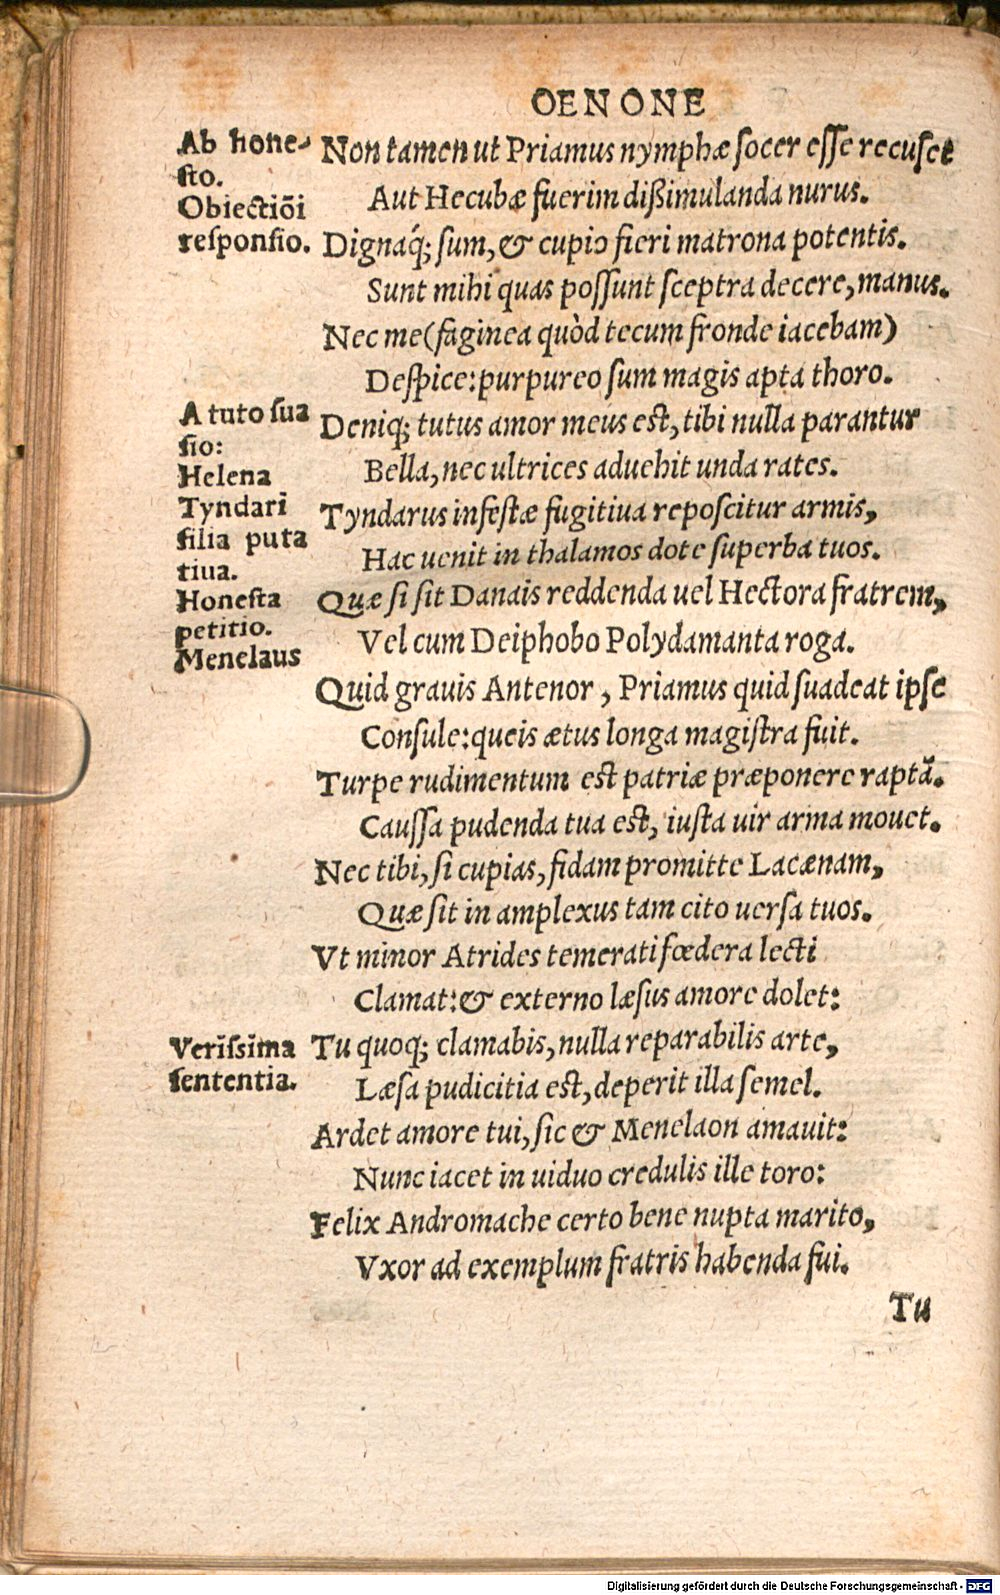 OENONE
Ab hone-
sto.
Obiectiōi
responsio.
Non tamen ut Priamus nymphæ socer esse recuset
Aut Hecubæ fuerim dißimulanda nurus.
Dignaq́; sum, & cupio fieri matrona potentis.
Sunt mihi quas possunt sceptra decere, manus.
Nec me (faginea quòd tecum fronde iacebam)
Despice: purpureo sum magis apta thoro.
A tuto sua
sio:
Helena
Tyndari
filia puta
tiua.
Honesta
petitio.
Menelaus
Deniq; tutus amor meus est, tibi nulla parantur
Bella, nec ultrices aduehit unda rates.
Tyndarus infestæ fugitiua reposcitur armis,
Hac uenit in thalamos dote superba tuos.
Quæ si sit Danais reddenda uel Hectora fratrem,
Vel cum Deiphobo Polydamanta roga.
Quid grauis Antenor, Priamus quid suadeat ipse
Consule: queis ætus longa magistra fuit.
Turpe rudimentum est patriæ præponere raptā.
Caussa pudenda tua est, iusta uir arma mouet.
Nec tibi, si cupias, fidam promitte Lacænam,
Quæ sit in amplexus tam cito uersa tuos.
Vt minor Atrides temerati fœdera lecti
Clamat: & externo læsus amore dolet:
Verissima
sententia.
Tu quoq; clamabis, nulla reparabilis arte,
Læsa pudicitia est, deperit illa semel.
Ardet amore tui, sic & Menelaon amauit:
Nunc iacet in uiduo credulis ille toro:
Felix Andromache certo bene nupta marito,
Vxor ad exemplum fratris habenda fui.
Tu
Digitalisierung gefördert durch die Deutsche Forschungsgemeinschaft - DFG